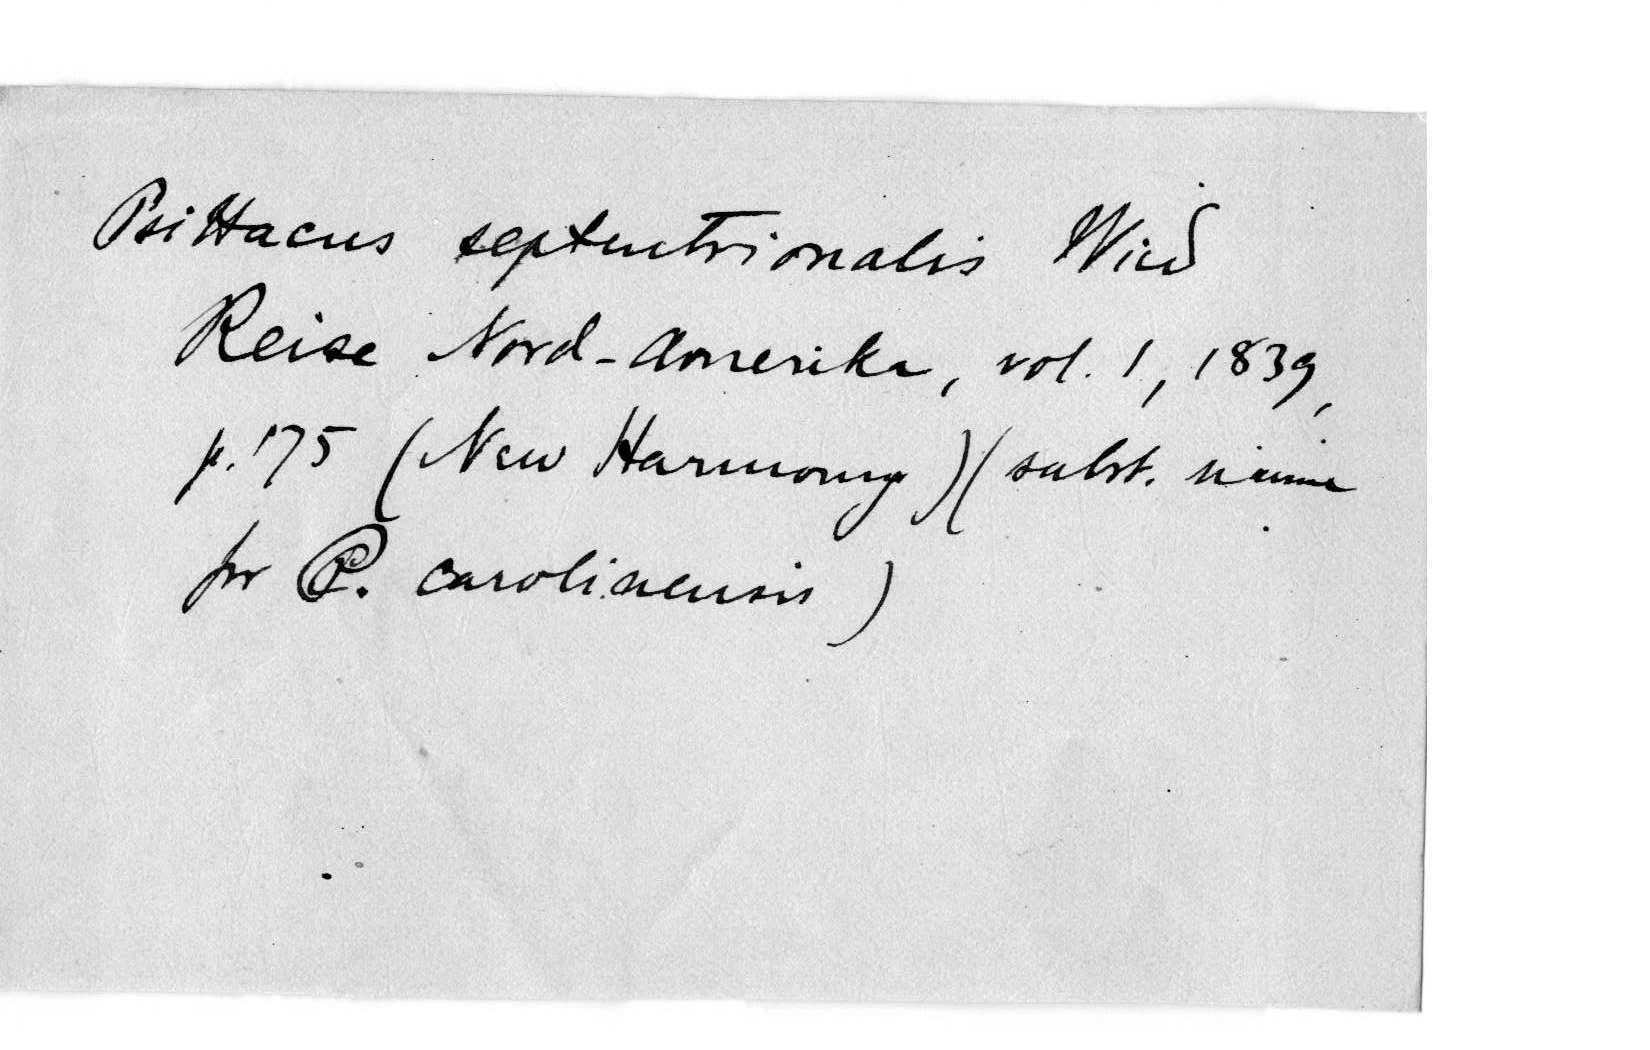 Psittacus septentrionalis Wied
Reise Nord-Amerika, vol. 1, 1839,
p. 175 (New Harmony)(subst. name
for P. carolinensis)